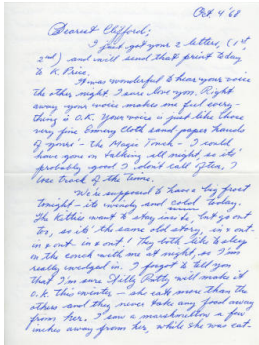 Oct. 4 '68
Dearest Clifford;
I just got your 2 letters, (1st,
2nd) and will send that print today
to K. Price.
It was wonderful to hear your voice
the other night I sure love you. Right
away your voice makes me feel every-
thing is O.K. Your voice is just like those
very fine Emery Cloth sand paper hands
of yours - the Magic Touch - I could
have gone on talking all night so its'
probably good I don't call often, I
lose track of the time.
We're supposed to have a big frost
tonight - its windy and cold today.
The Kitties want to stay inside, but go out
to, so it's the same old story, in & out -
in & out - in & out! They both like to sleep
on the couch with me at night, so I'm
really wedged in. I forgot to tell you
that I'm sure Silly Putty will make it
o.k. this winter - she eats more than the
others and they never take any food away
from her. I saw a marshmallow a few
inches away from her, while she was eat-